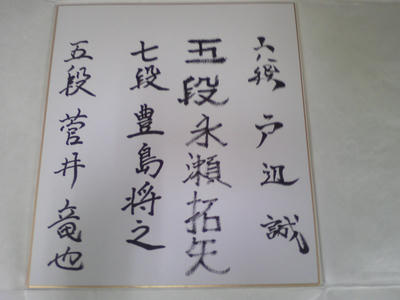 六段 戸辺誠
五段 永瀬拓矢
七段 豊島将之
五段 菅井竜也